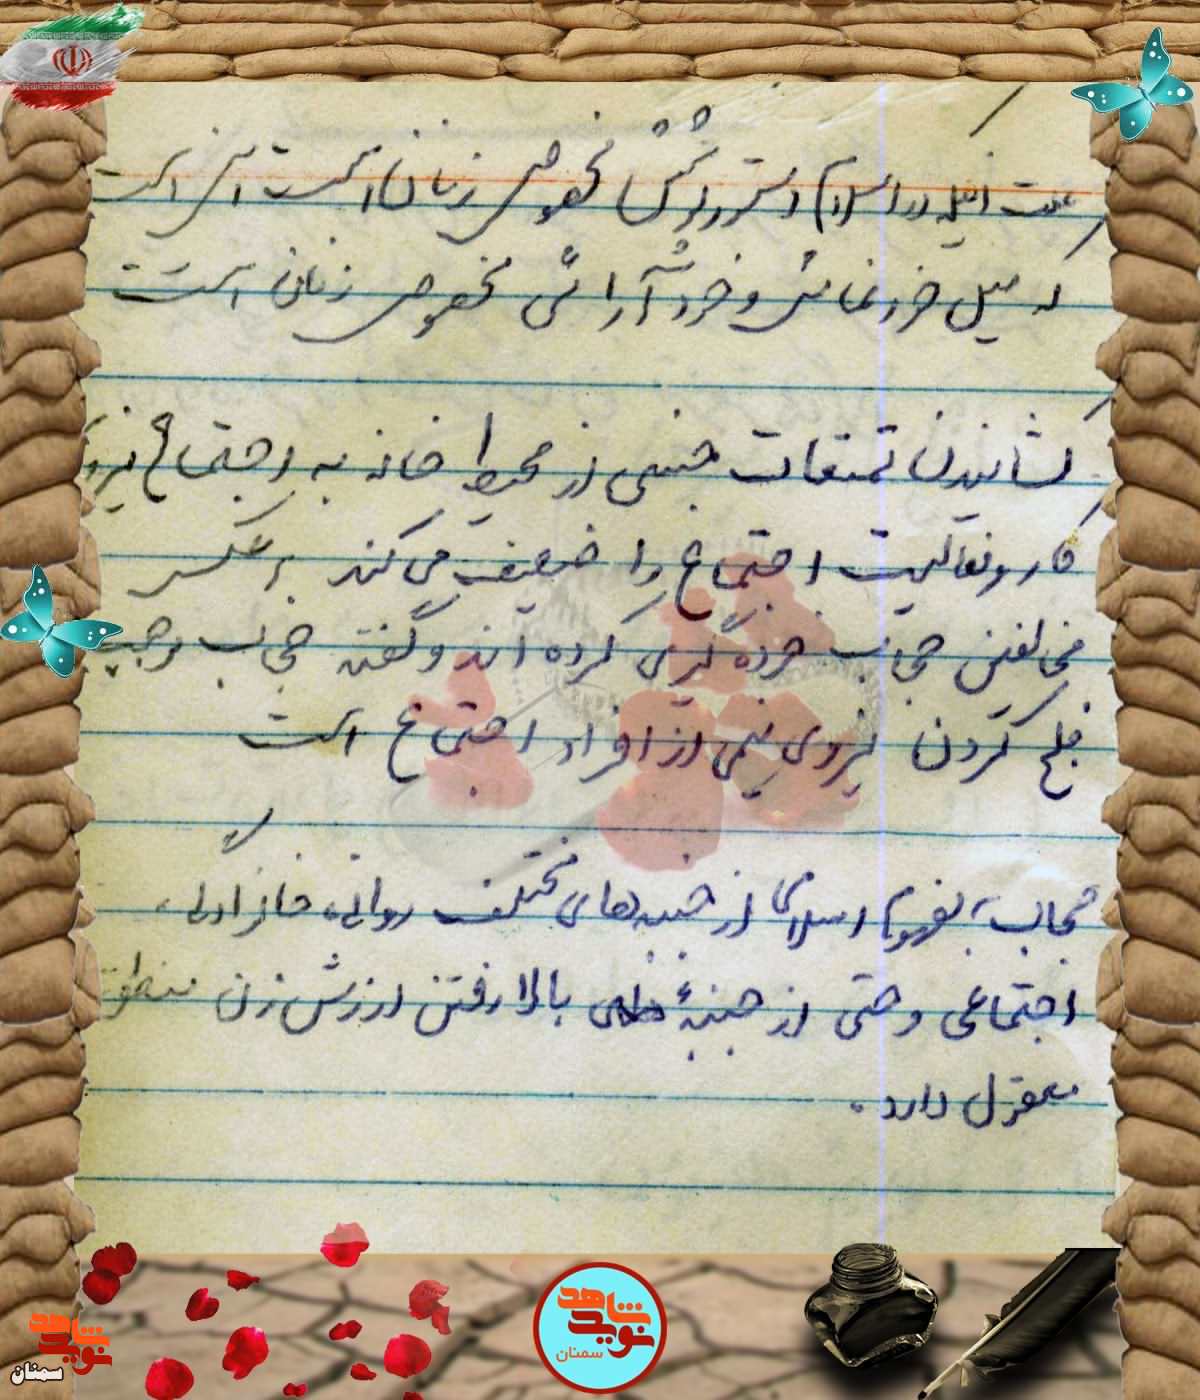 علت اینکه در اسلام دستور پوشش مخصوص زنان است این است
که میل خودنمائی و خودآرائی مخصوص زنان است
کشانیدن تمتعات جنسی از محیط خانه به اجتماع نیروی
کار و فعالیت اجتماع را ضعیف می کند برعکس
مخالفین حجاب خرده گیری کرده اند و گفته حجاب موجب
فلج کردن نیروی نیمی از افراد اجتماع است
حجاب بمفهوم اسلامی از جنبه های مختلف روانی، خانوادگی،
اجتماعی و حتی از جنبهٔ بالا رفتن ارزش زن منطق
معقول دارد.
نوید شاهد
سمنان
نوید شاهد
سمنان